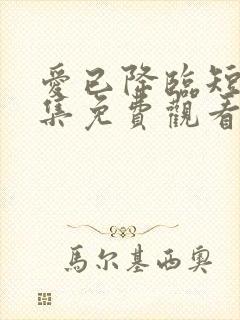 愛已降臨短
集免費觀看
馬尔基西奧